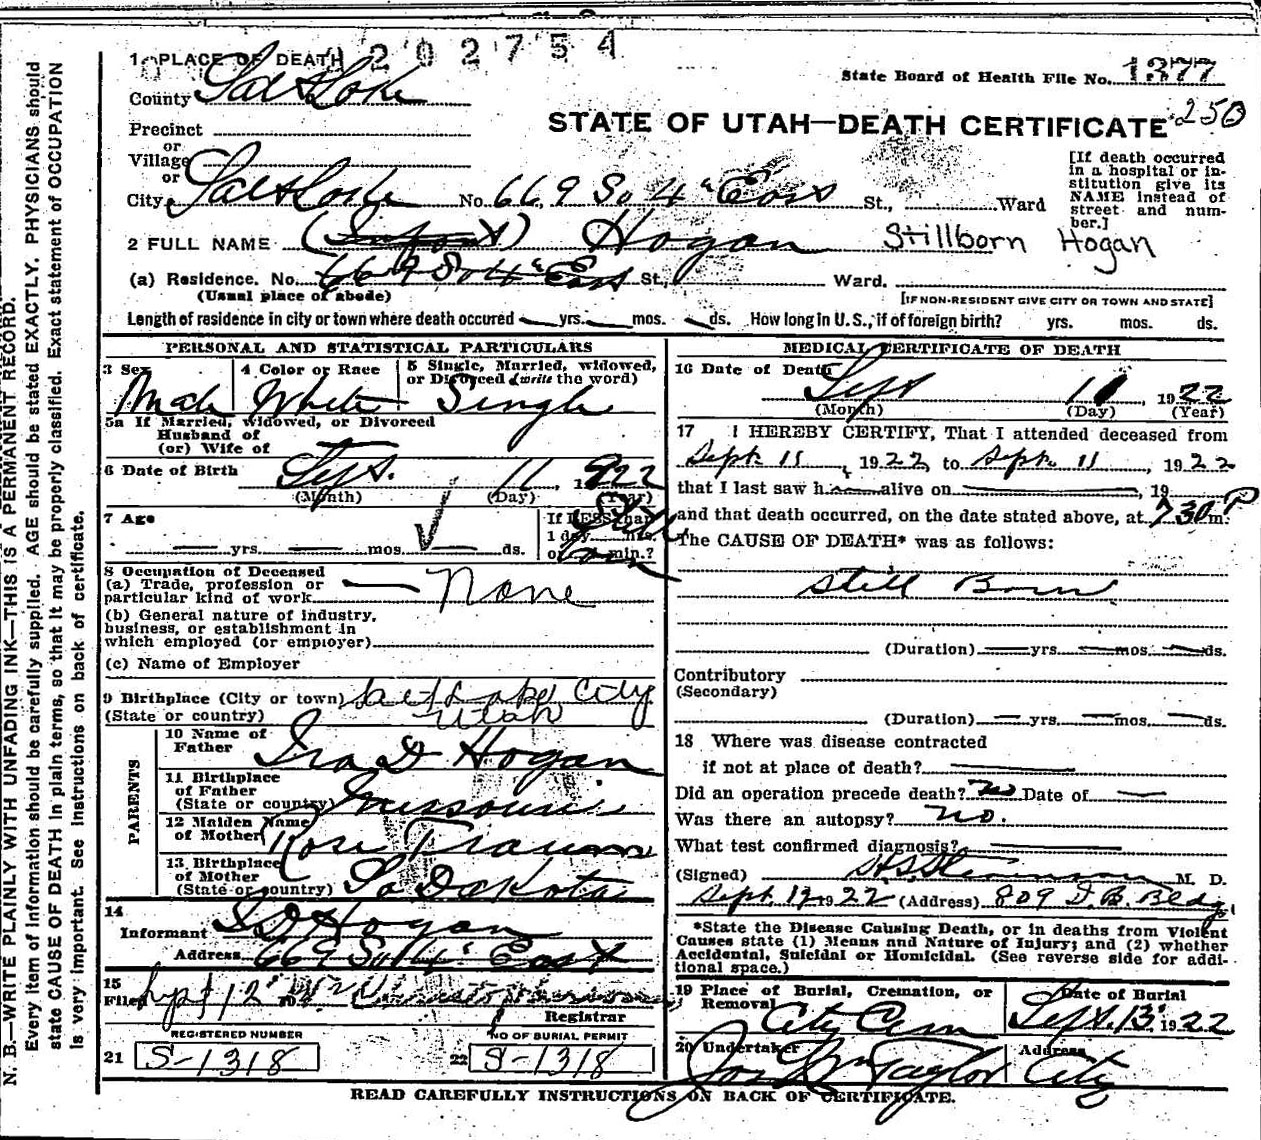 N. B.—WRITE PLAINLY WITH UNFADING INK—THIS IS A PERMANENT RECORD.
Every item of information should be carefully supplied. AGE should be stated EXACTLY. PHYSICIANS should
state CAUSE OF DEATH in plain terms, so that it may be properly classified. Exact statement of OCCUPATION
is very important. See instructions on back of certificate.
202754
1 PLACE OF DEATH
State Board of Health File No. 1377
County Salt Lake
250
STATE OF UTAH—DEATH CERTIFICATE
Precinct
or
Village
or
City Salt Lake No. 669 So 4" East St., Ward
[If death occurred
in a hospital or in-
stitution give its
NAME instead of
street and num-
ber.]
2 FULL NAME (Infant) Hogan Stillborn Hogan
(a) Residence. No. 669 So 4" East St., Ward.
(Usual place of abode)
[IF NON-RESIDENT GIVE CITY OR TOWN AND STATE]
Length of residence in city or town where death occured yrs. mos. ds. How long in U. S., if of foreign birth? yrs. mos. ds.
PERSONAL AND STATISTICAL PARTICULARS
3 Sex Male
4 Color or Race White
5 Single, Married, widowed,
or Divorced (write the word)
Single
5a If Married, widowed, or Divorced
Husband of
(or) Wife of
6 Date of Birth Sept. 11, 1922
(Month) (Day) (Year)
7 Age yrs. mos. ds.
If LESS than
1 day hrs.
or min.?
Still Born
8 Occupation of Deceased
(a) Trade, profession or
particular kind of work None
(b) General nature of industry,
business, or establishment in
which employed (or employer)
(c) Name of Employer
9 Birthplace (City or town) Salt Lake City
(State or country) Utah
PARENTS
10 Name of
Father Ira D Hogan
11 Birthplace
of Father
(State or country) Missouri
12 Maiden Name
of Mother Rose
13 Birthplace
of Mother
(State or country) So Dakota
14
Informant I D Hogan
Address 669 So 4" East
15
Filed Sept 12 1922
Registrar
REGISTERED NUMBER
21 S-1318
NO OF BURIAL PERMIT
22 S-1318
MEDICAL CERTIFICATE OF DEATH
16 Date of Death Sept 11, 1922
(Month) (Day) (Year)
17 I HEREBY CERTIFY, That I attended deceased from
Sept 11, 1922, to Sept. 11, 1922
that I last saw h alive on , 19
and that death occurred, on the date stated above, at 7 30 P m.
The CAUSE OF DEATH* was as follows:
Still Born
(Duration) yrs. mos. ds.
Contributory
(Secondary)
(Duration) yrs. mos. ds.
18 Where was disease contracted
if not at place of death?
Did an operation precede death? No Date of
Was there an autopsy? No.
What test confirmed diagnosis?
(Signed) M. D.
Sept. 12 1922 (Address) 809 D. B. Bldg.
*State the Disease Causing Death, or in deaths from Violent
Causes state (1) Means and Nature of Injury; and (2) whether
Accidental, Suicidal or Homicidal. (See reverse side for addi-
tional space.)
19 Place of Burial, Cremation, or
Removal City Cem
Date of Burial
Sept. 13, 1922
20 Undertaker
Taylor
Address
City
READ CAREFULLY INSTRUCTIONS ON BACK OF CERTIFICATE.